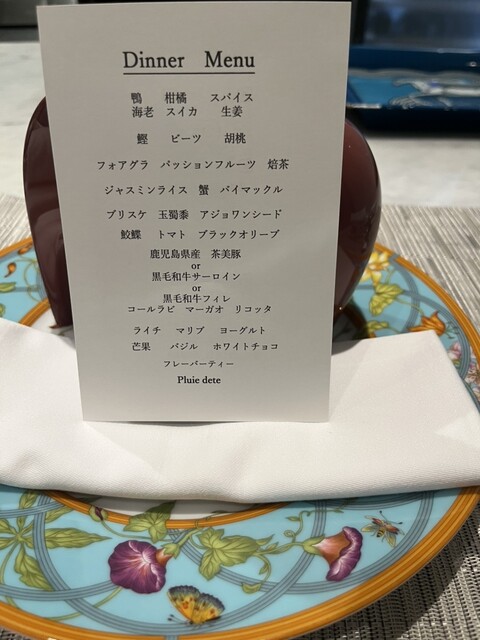 Dinner Menu
鴨 柑橘 スパイス
海老 スイカ 生姜
鰹 ビーツ 胡桃
フォアグラ パッションフルーツ 焙茶
ジャスミンライス 蟹 バイマックル
ブリスケ 玉蜀黍 アジョワンシード
鮫鰈 トマト ブラックオリーブ
鹿児島県産 茶美豚
or
黒毛和牛サーロイン
or
黒毛和牛フィレ
コールラビ マーガオ リコッタ
ライチ マリブ ヨーグルト
芒果 バジル ホワイトチョコ
フレーバーティー
Pluie dete